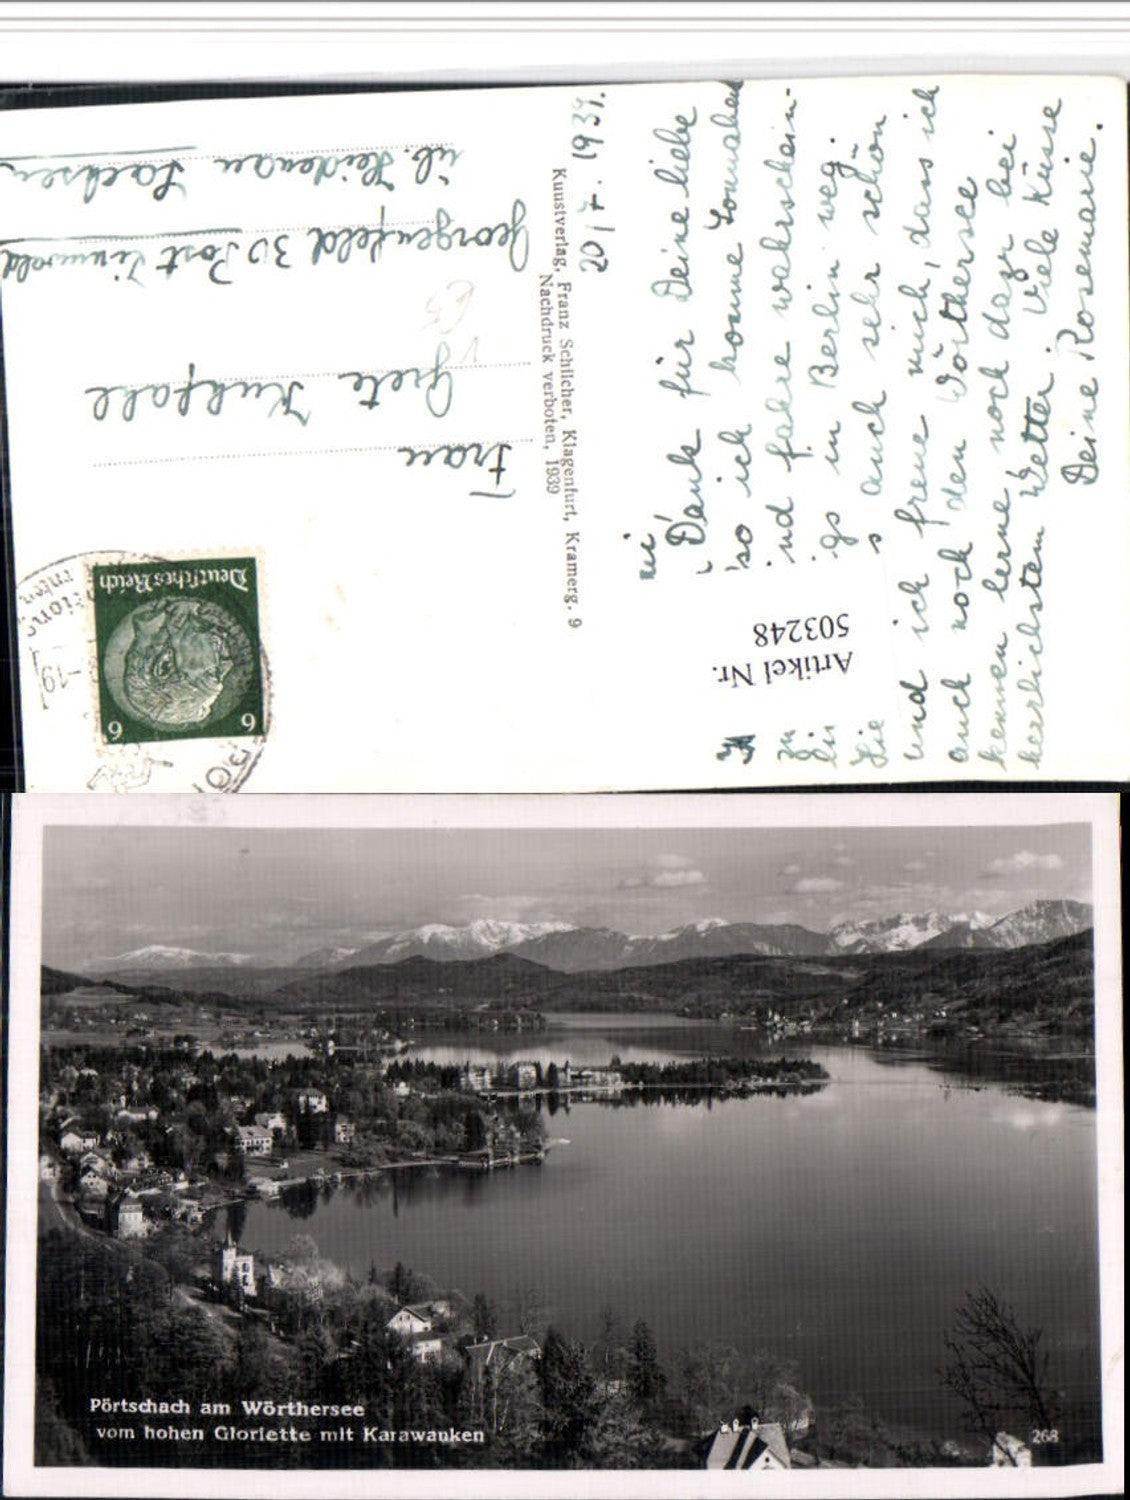 20/7. 1939.
Dank für Deine liebe
so ich komme Sonnabend
und fahre wahrschein-
in Berlin weg.
auch sehr schön
und ich freue mich, dass ich
auch noch den Wörthersee
kennen lerne noch dazu bei
herrlichstem Wetter. Viele Küsse
Deine Rosemarie.
Artikel Nr.
503248
Kunstverlag, Franz Schilcher, Klagenfurt, Kramerg. 9
Nachdruck verboten, 1939
Deutsches Reich
6 6
Frau
Grete
Georgenfeld 30 Post Zinnwald
üb. Heidenau Sachsen
Pörtschach am Wörthersee
vom hohen Gloriette mit Karawanken
268